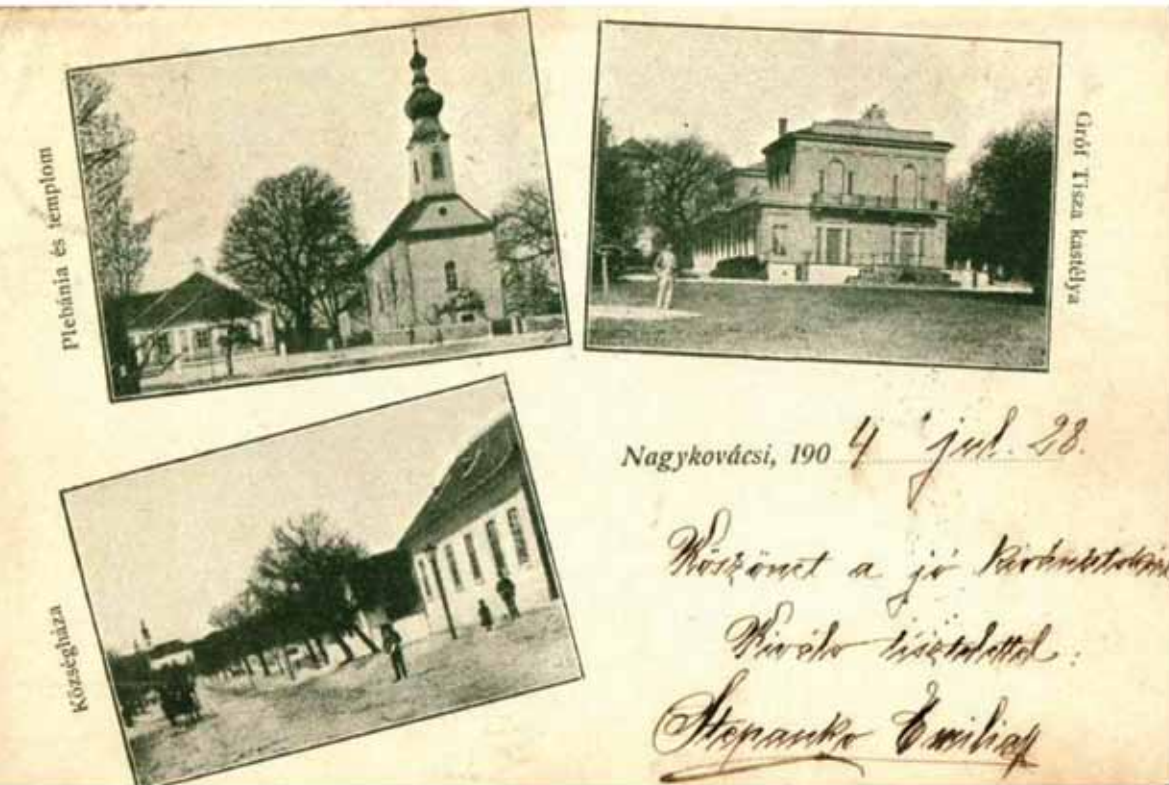 Plebánia és templom
Gróf Tisza kastélya
Községháza
Nagykovácsi, 1904 jul. 28.
Köszönet a jó kívánatokért
Kiváló tisztelettel:
Stepanko Emilia